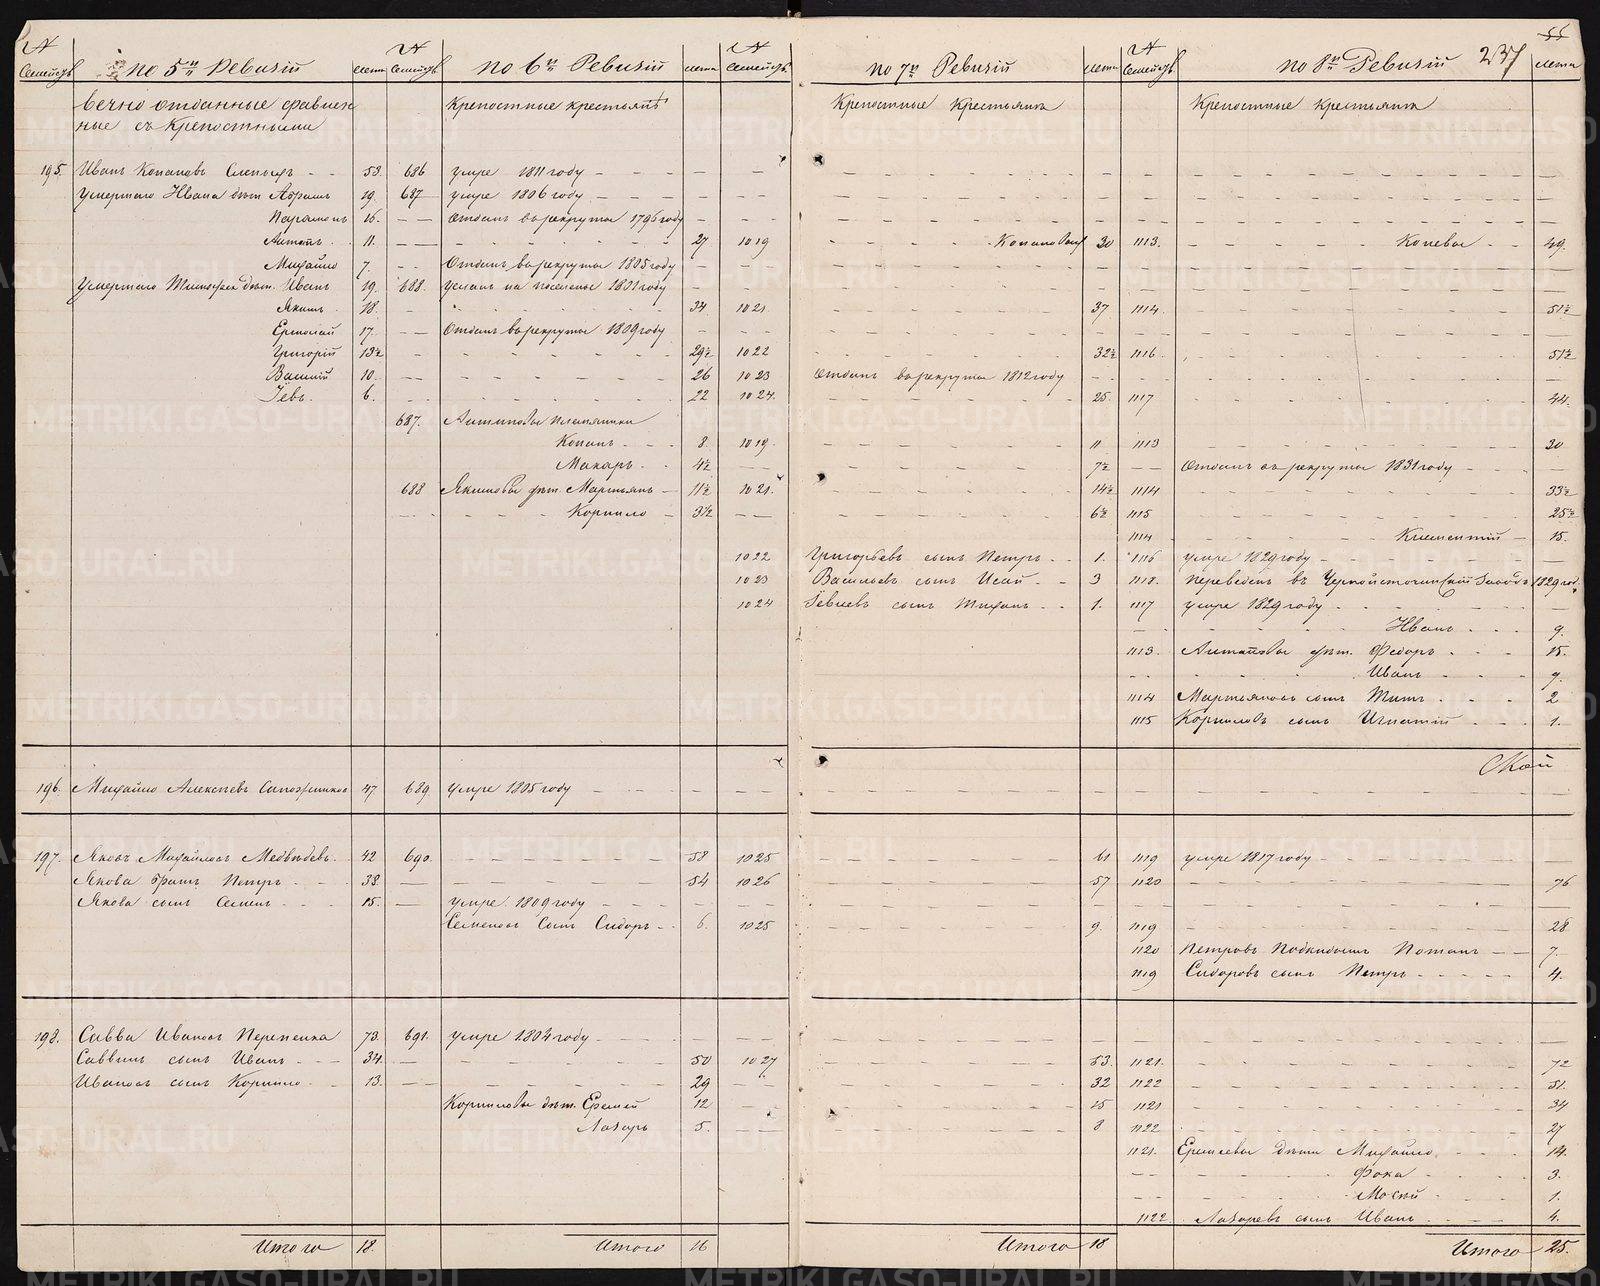 55
237
№ Семействъ по 5й Ревизіи лета № Семействъ по 6й Ревизіи лета № Семействъ по 7й Ревизіи лета № Семействъ по 8й Ревизіи лета
вечно отданные сравнен Крепостные крестьянѣ Крепостные Крестьяна Крепостные крестьяна
ные съ Крепостными
195. Иванъ Копановъ 53. 686 умре 1811 году
умершаго Ивана дѣт. Абрамъ 19. 687 умре 1806 году
Парамонъ 16. Отданъ в рекруты 1796 году
Антипъ 11. 27 1019 30 1113. 49.
Михайло 7. Отданъ в рекруты 1805 году
умершаго Тимофея дѣт. Иванъ 19. 688. усланъ на поселенье 1801 году
Якимъ 18. 34 1021 37 1114. 51½
Ермолай 17. Отданъ в рекруты 1809 году
Григорій 13½ 29½ 1022 32½ 1116. 51½
Василій 10. 26 1023 Отданъ в рекруты 1812 году
Іевъ. 6. 22 1024. 25. 1117 44.
687. Антиповы племянники
Копанъ 8. 1019. 11 1113 30
Макаръ 4½ 7½ Отданъ въ рекруты 1831 году
688 Якимовы дѣт. Мартьянъ 11½ 1021. 14½ 1114 33½
Корнило 3½ 6½ 1115 25½
1114 Климентій 15.
1022 Григорьевъ сынъ Петръ 1. 1116 умре 1829 году
1023 Васильевъ сынъ Исай 3 1118. переведенъ въ Черноисточинскій Заводъ 1829 год.
1024 Іевлевъ сынъ Тихонъ 1. 1117 умре 1829 году
Иванъ 9.
1113. Антиповы дѣт. Федоръ 15.
Иванъ 9.
1114 Мартьяновъ сынъ Титъ 2
1115 Корниловъ сынъ Игнатій 1.
196. Михайло Алексѣевъ Сапожниковъ 47. 689. умре 1805 году
197. Яковъ Михайловъ Медвѣдевъ 42 690. 58 1025 61 1119 умре 1817 году
Якова братъ Петръ 38. 54 1026 57 1120 76
Якова сынъ Семенъ 15. умре 1809 году
Семеновъ сынъ Сидоръ 6. 1025 9. 1119 28
1120 Петровъ подкидышъ Потапъ 7.
1119 Сидоровъ сынъ Петръ 4.
198. Савва Ивановъ Перепелка 73. 691. умре 1804 году
Саввинъ сынъ Иванъ 34. 50 1027 53. 1121. 72
Ивановъ сынъ Корнило 13. 29 32 1122 51.
Корниловы дѣт. Еремей 12 15 1121 34
Лазарь 5. 8 1122 27
1121. Еремеевы дѣти Михайло 14.
Фока 3.
Мокій 1.
1122. Лазаревъ сынъ Иванъ 4.
Итого 18. Итого 16 Итого 18 Итого 25.
METRIKI.GASO-URAL.RU